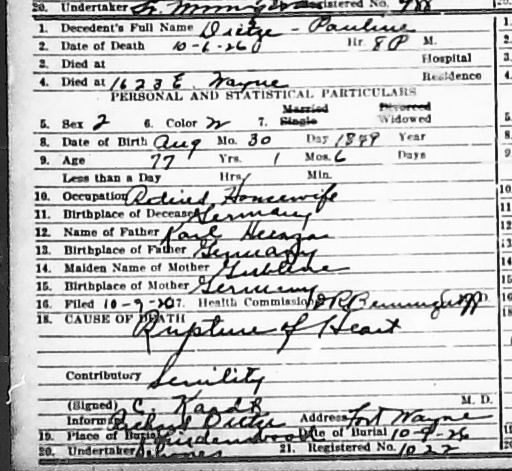 20. Undertaker Registered No. 988
1. Decedent's Full Name Dietze - Pauline
2. Date of Death 10-6-26 Hr. 8 P M.
3. Died at Hospital
4. Died at 1623 E. Wayne Residence
PERSONAL AND STATISTICAL PARTICULARS
Married Divorced
5. Sex 2 6. Color W 7. Single Widowed
8. Date of Birth Aug Mo. 30 Day 1849 Year
9. Age 77 Yrs. 1 Mos. 6 Days
Less than a Day Hrs. Min.
10. Occupation Retired Housewife
11. Birthplace of Deceased Germany
12. Name of Father Karl
13. Birthplace of Father Germany
14. Maiden Name of Mother
15. Birthplace of Mother Germany
16. Filed 10-9-26 17. Health Commissioner
18. CAUSE OF DEATH
Rupture of Heart
Contributory Senility
(Signed) C. M. D.
Informant Richard Dietze Address Fort Wayne
19. Place of Burial Lindenwood Date of Burial 10-9-26
20. Undertaker 21. Registered No. 1022